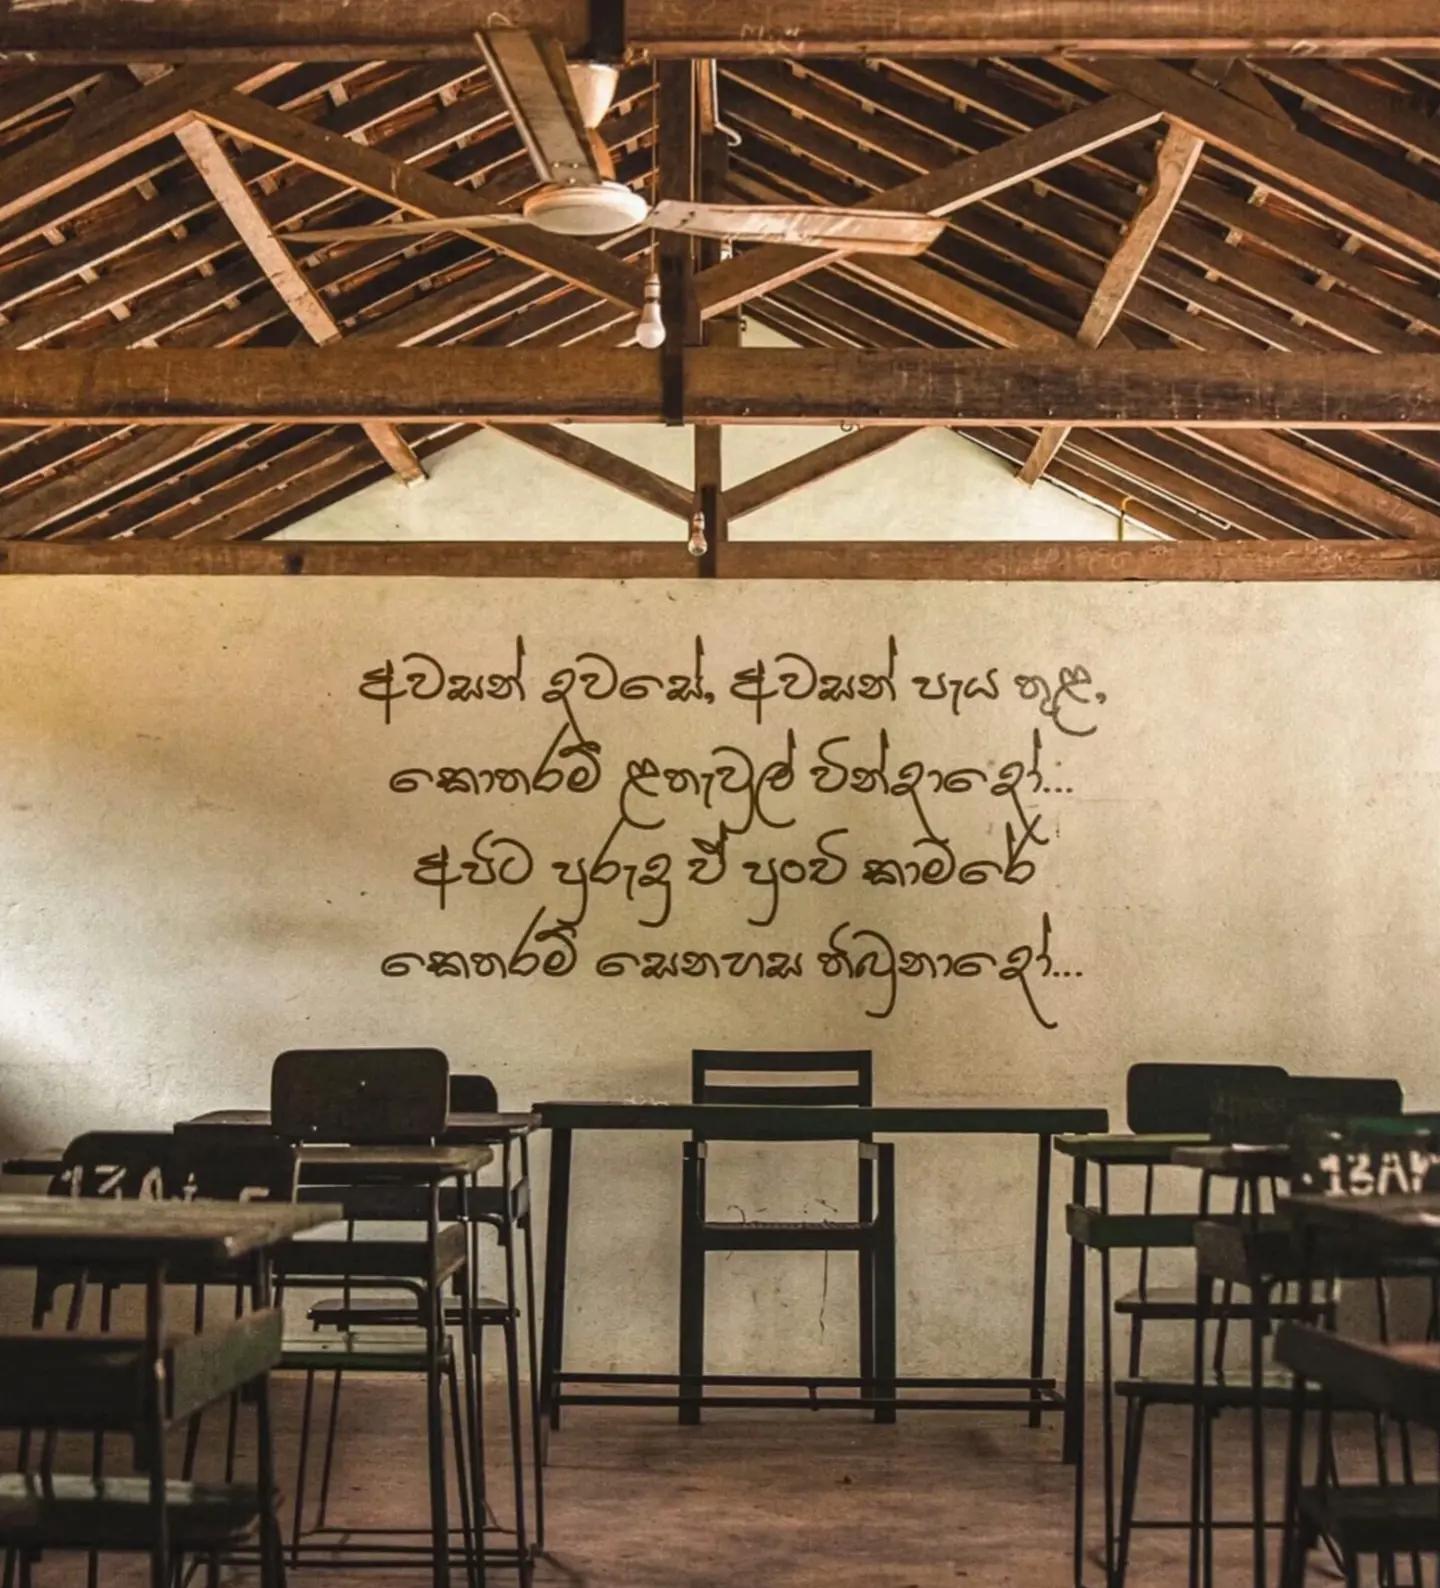 අවසන් දවසේ, අවසන් පැය තුළ,
කොතරම් ළතැවුල් වින්දාදෝ...
අපිට පුරුදු ඒ පුංචි කාමරේ
කෙතරම් සෙනහස තිබුනාදෝ...
13A
13A